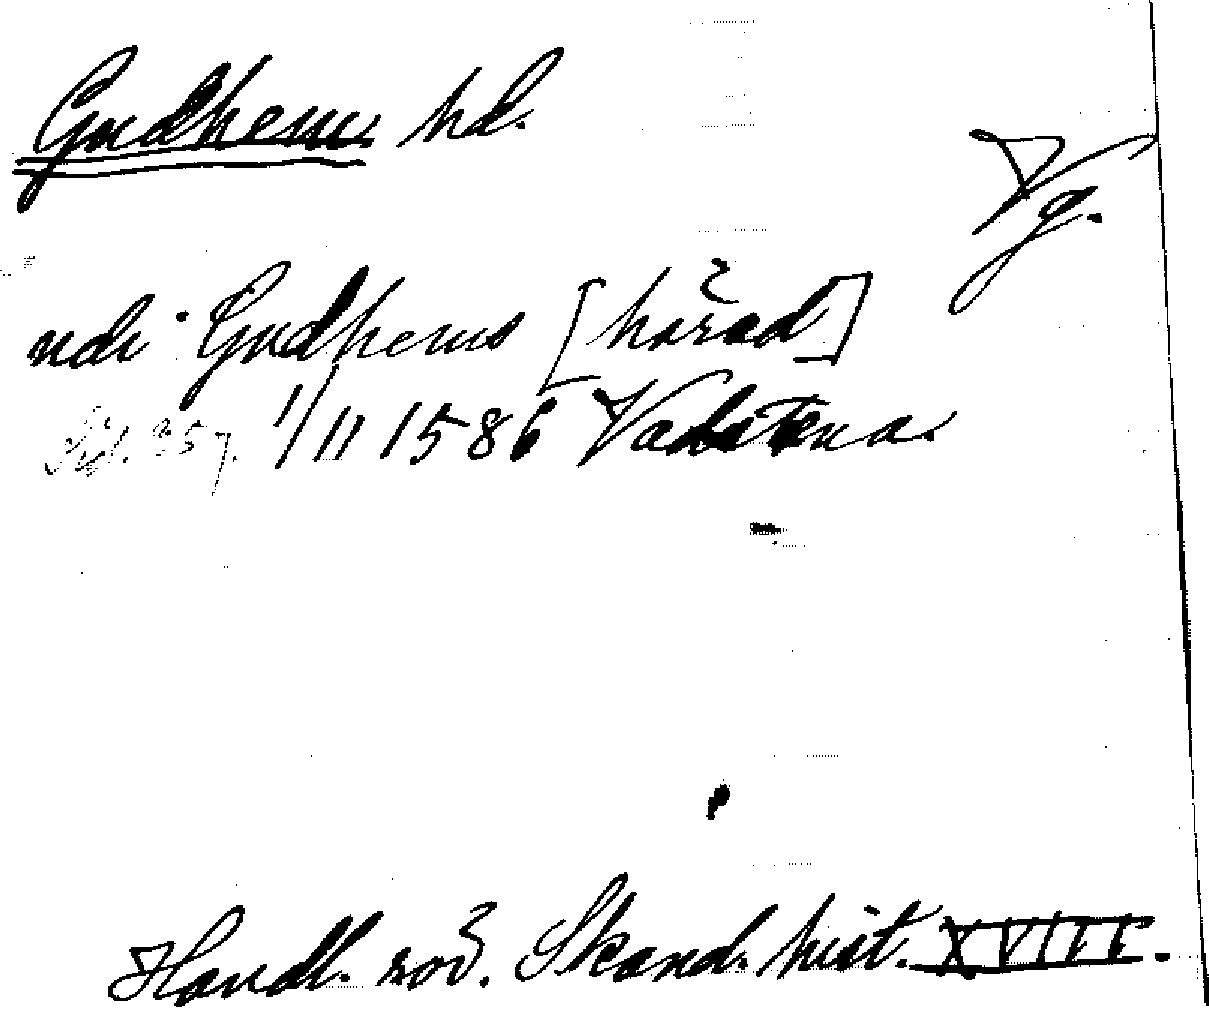 Gudhems hd.
Vg.
udi Gudhems [härad]
Sid. 357. 1/11 1586 Vadstena.
Handl. rör. Skand. hist. XVIII.